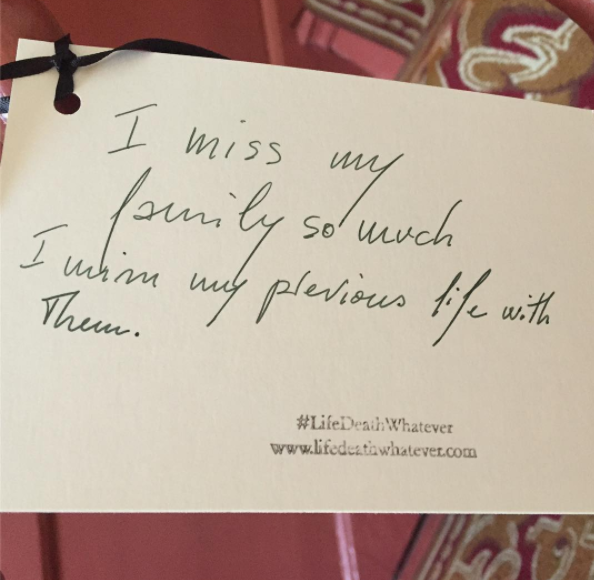 I miss my
family so much
I mim my previous life with
Them.
#LifeDeathWhatever
www.lifedeathwhatever.com